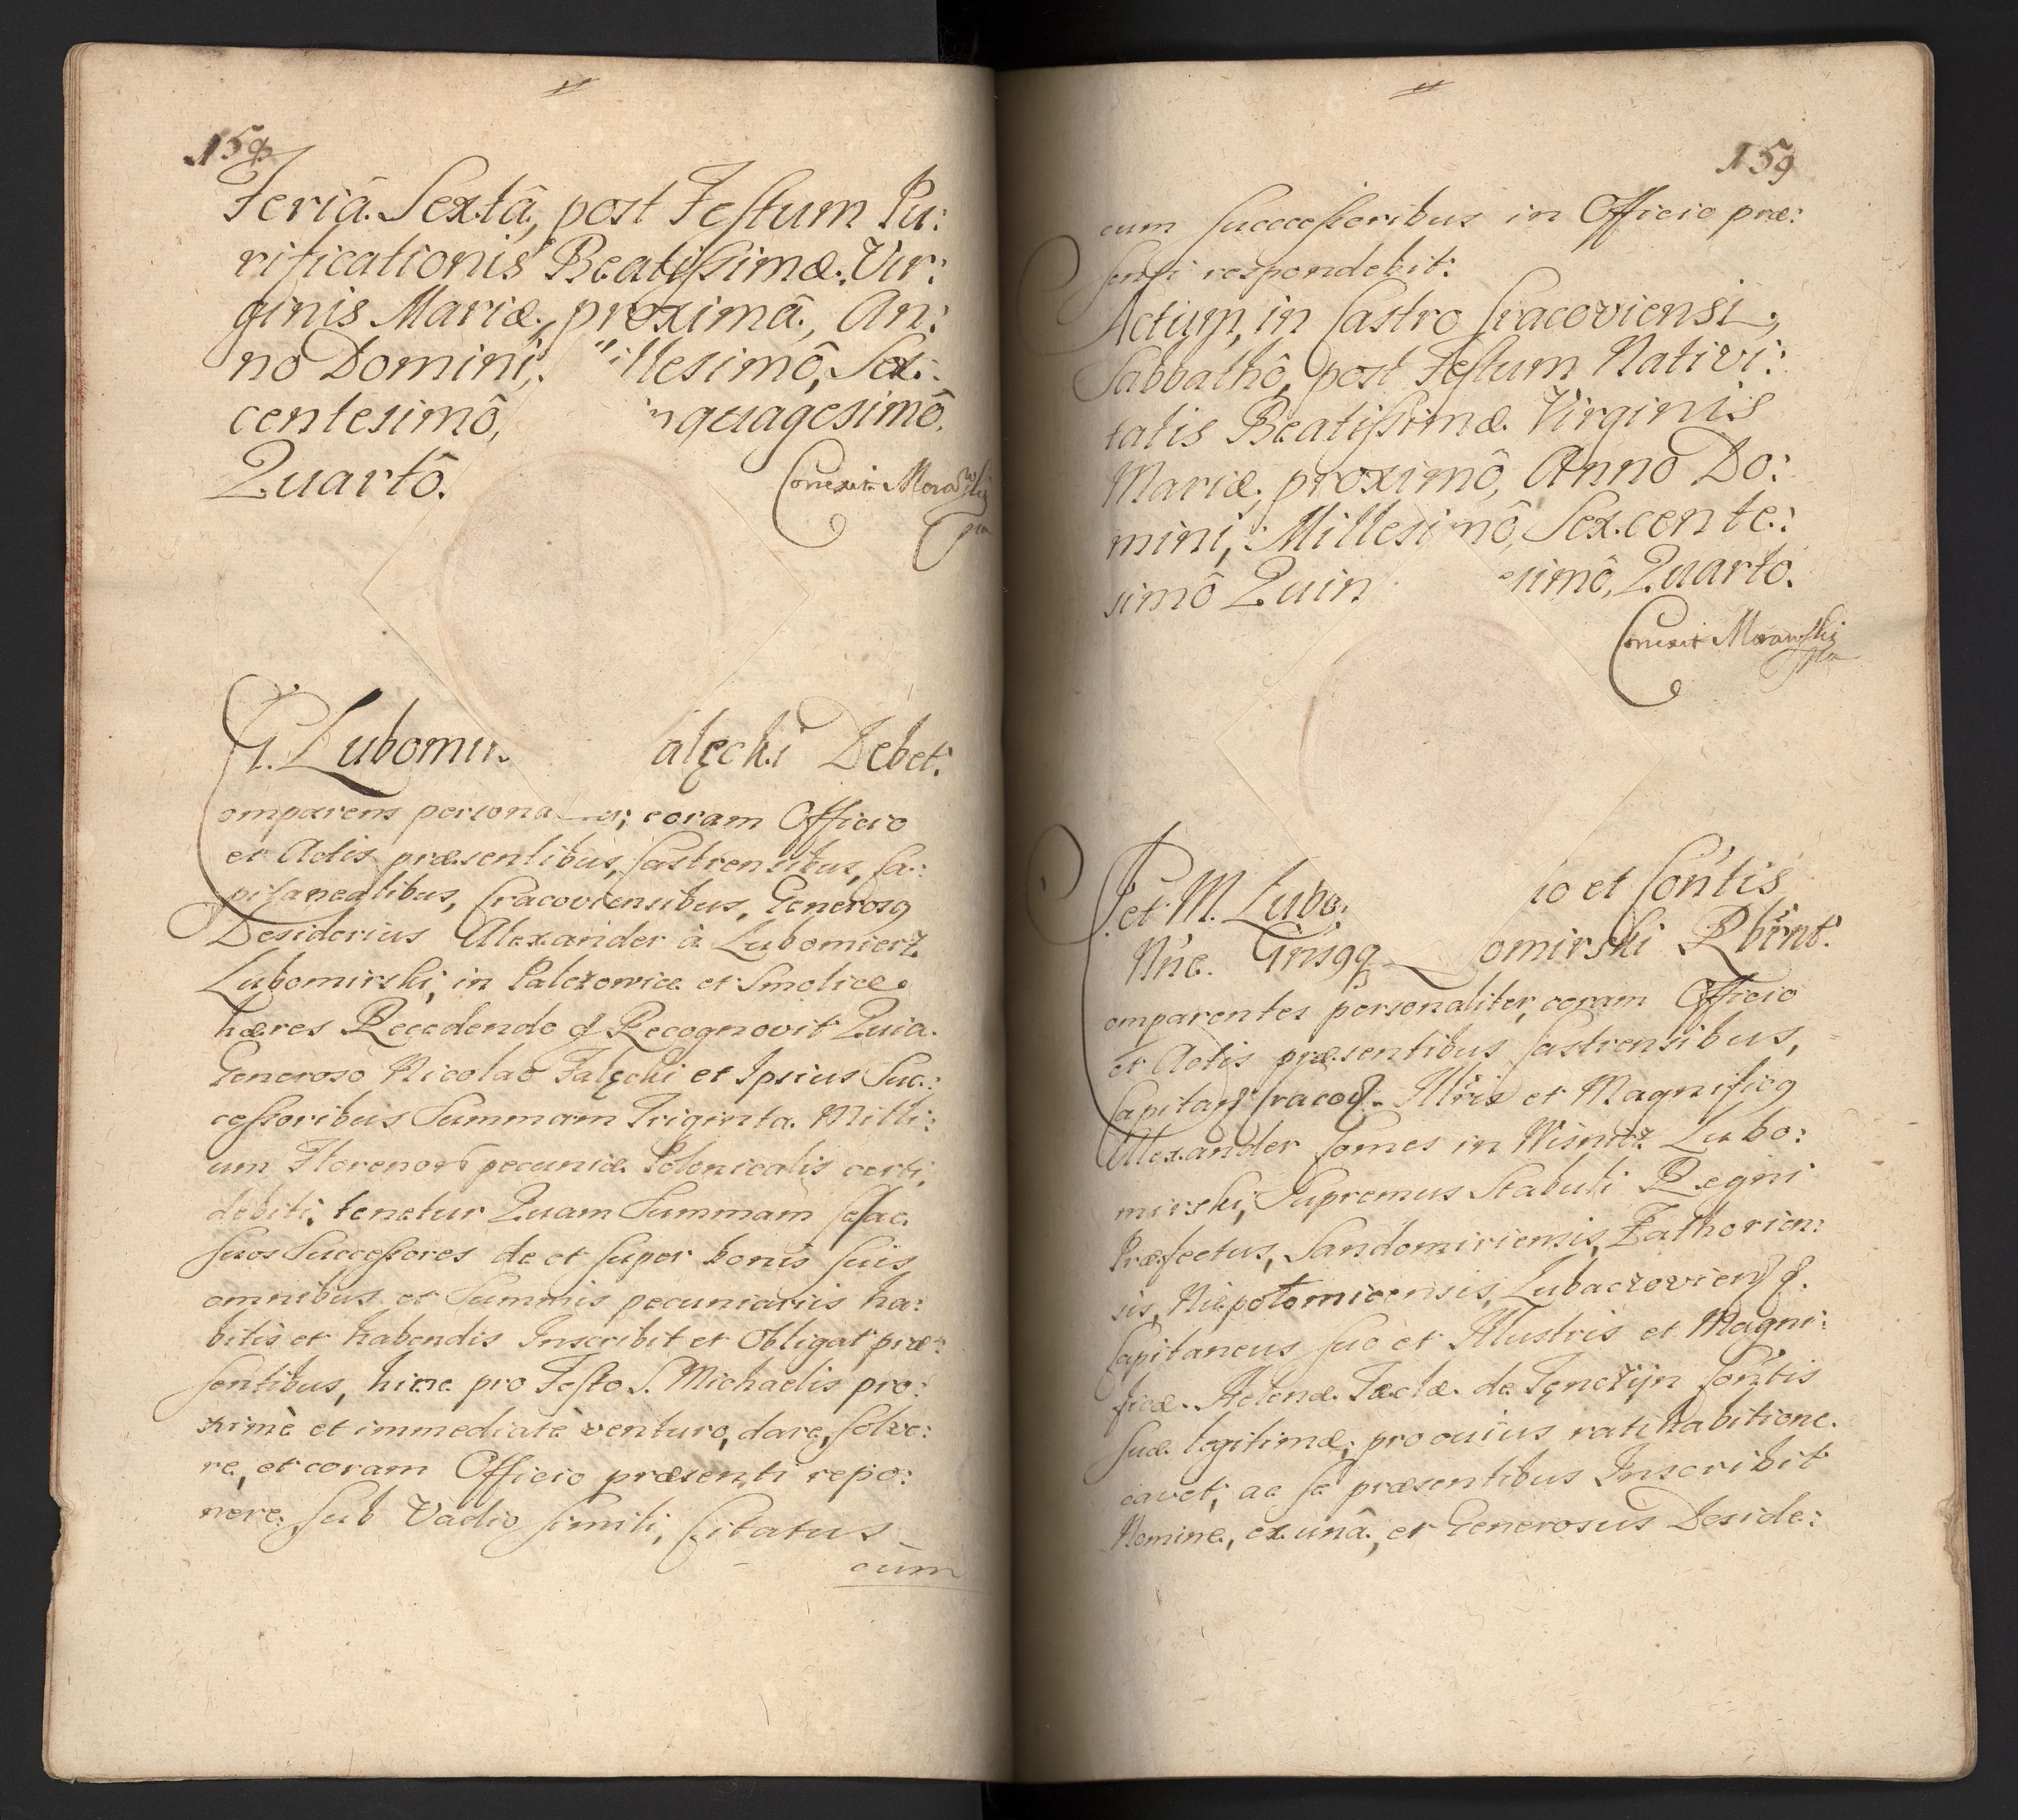 158
Feriâ Sextâ, post Festum Pu:
rificationis Beatissimæ Vir:
ginis Mariæ, proximâ, An:
no Domini, illesimô, Sex:
centesimô, nquagesimô
Quartô.
Correxit Morawski
G. Lubomir alęcki Debet.
omparens persona er, coram Officio
et Actis præsentibus, Castrensibus, Ca:
pitanealibus, Cracoviensibus, Generosq
Desiderius Alexander à Lubomierz
Lubomirski, in Palczowice et Smolice
hæres Recedendo Recognovit Quia
Generoso Nicolao Falęcki et Ipsius Suc:
cessoribus Summam Triginta Milli:
um Florenor pecuniæ Polonicalis certi,
debiti, tenetur Quam Summam se ac
suos Successores de et super bonis suis
omnibus et Summis pecuniariis ha:
bitis et habendis Inscribit et Obligat præ:
sentibus, hinc pro Festo S. Michaelis pro:
ximè et immediatè venturo, dare, solve:
re, et coram Officio præsenti repo:
nere. sub Vadio simili, Citatus
cum
159
cum successoribus in Officio præ:
senti respondebit.
Actum, in Castro Cracoviensi,
Sabbathô, post Festum Nativi:
tatis Beatissimæ Virginis
Mariæ, proximô, Anno Do:
mini, Millesimô, Sexcente:
simô Quin esimô, Quarto.
Correxit Morawski
et M. Lubo io et Contis
Nne. Gnsqq omirski Rbint.
omparentes personaliter, coram Officio
et Actis præsentibus Castrensibus,
Capitan Cracov. Illris et Magnificq
Alexander Comes in Wisnicz Lubo:
mirski, Supremus Stabuli Regni
Præfectus, Sandomiriensis, Zathorien:
sis, Niepotomicensis, Lubaczovien
Capitaneus suo et Illustris et Magni:
ficæ Helenæ Tæclæ de Tęnczÿn Contis
suæ legitimæ, pro cuius ratihabitione
cavet, ac se præsentibus Inscribit
Nomine, ex unâ, et Generosus Deside: